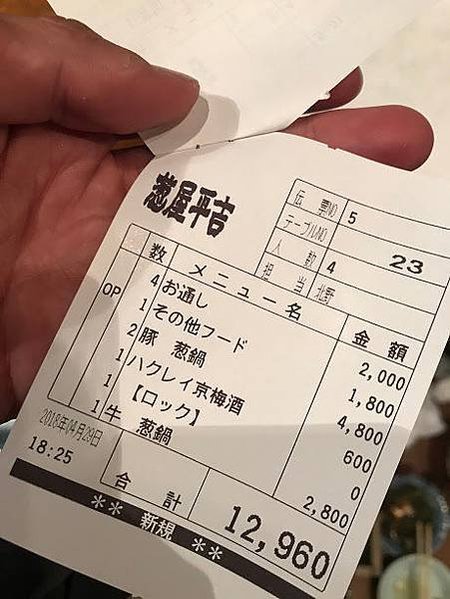 葱屋平吉
伝票NO 5
テーブルNO 23
人数 4
担当 北野
数 メニュー名 金額
4 お通し 2,000
OP 1 その他フード 1,800
2 豚 葱鍋 4,800
1 ハクレイ京梅酒 600
1 【ロック】 0
1 牛 葱鍋 2,800
2018年04月29日
18:25
合計 12,960
** 新規 **